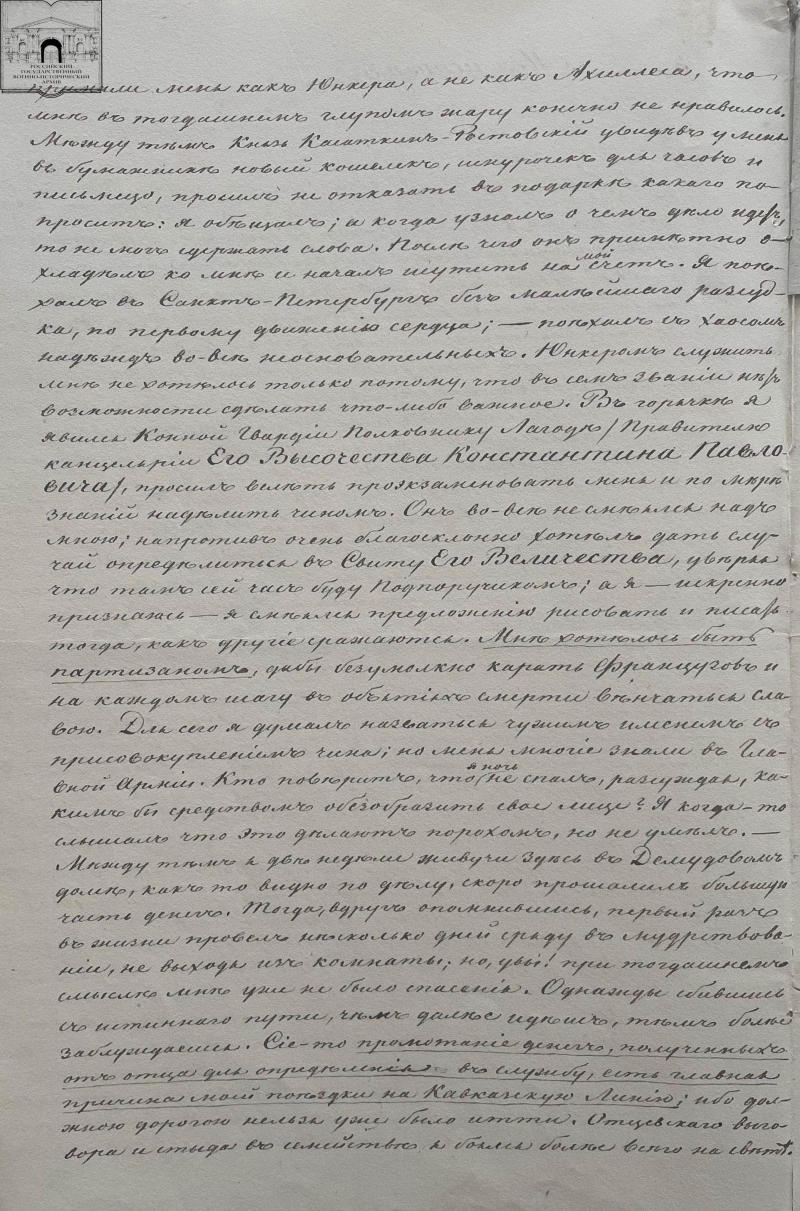 РОССИЙСКИЙ
ГОСУДАРСТВЕННЫЙ
ВОЕННО-ИСТОРИЧЕСКИЙ
АРХИВ
приняли меня какъ Юнкера, а не какъ Ахиллеса, что
мнѣ въ тогдашнемъ глупомъ жару конечно не нравилось.
Между тѣмъ Князь Касаткинъ-Ростовскій увидѣвъ у меня
въ бумажникѣ новый кошелекъ, шнурочекъ для часовъ и
письмецо, просилъ не отказать въ подаркѣ какаго по-
проситъ: я обѣщалъ; а когда узналъ о чемъ дѣло идетъ,
то не могъ сдержать слова. Послѣ чего онъ примѣтно о-
хладѣлъ ко мнѣ и началъ шутить на мой счетъ. Я поѣ-
халъ въ Санктъ-Петербургъ безъ малѣйшаго разсуд-
ка, по первому движенію сердца; — поѣхалъ съ хаосомъ
надеждъ во-все неосновательныхъ. Юнкеромъ служить
мнѣ не хотѣлось только потому, что въ семъ званіи нѣтъ
возможности сдѣлать что-либо важное. Въ горячкѣ я
явился Конной Гвардіи Полковнику Лагодѣ /Правителю
канцеляріи Его Высочества Константина Павло-
вича/, просилъ велѣть проэкзаменовать меня и по мѣрѣ
знаній надѣлить чиномъ. Онъ во-все не смѣялся надъ
мною; напротивъ очень благосклонно хотѣлъ дать слу-
чай опредѣлиться въ Свиту Его Величества, увѣряя
что тамъ сей часъ буду Подпоручикомъ; а я — искренно
признаюсь — я смѣялся предложенію рисовать и писать
тогда, какъ другіе сражаются. Мнѣ хотѣлось быть
партизаномъ, дабы безумолкно карать Французовъ и
на каждомъ шагу въ объятіяхъ смерти вѣнчаться сла-
вою. Для сего я думалъ назваться чужимъ именемъ съ
присовокупленіемъ чина; но меня многіе знали въ Гла-
вной Арміи. Кто повѣритъ, что я ночь не спалъ, разсуждая, ка-
кимъ бы средствомъ обезобразить свое лице? Я когда-то
слышалъ что это дѣлаютъ порохомъ, но не умѣлъ. —
Между тѣмъ я двѣ недѣли живучи здѣсь въ Демудовомъ
домѣ, какъ то видно по дѣлу, скоро прошалилъ большую
часть денегъ. Тогда, вдругъ опомнившись, первый разъ
въ жизни провелъ нѣсколько дней сряду въ мудрствова-
ніи, не выходя изъ комнаты; но, увы! при тогдашнемъ
смыслѣ мнѣ уже не было спасенія. Однажды сбившись
съ истиннаго пути, чѣмъ далѣе идешь, тѣмъ болѣе
заблуждаешься. Сіе-то промотаніе денегъ, полученныхъ
отъ отца для опредѣленія въ службу, есть главная
причина моей поѣздки на Кавказскую Линію; ибо дол-
жною дорогою нельзя уже было итти. Отцевскаго выго-
вора и стыда въ семействѣ я боялся болѣе всего на свѣтѣ.